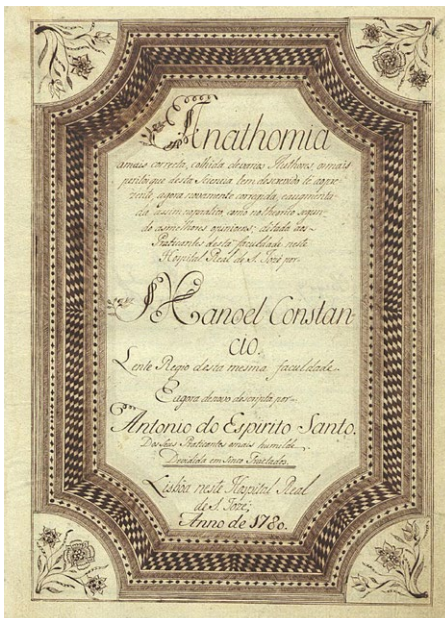 Anathomia
amais correcta, colhida devarios Authores, omais
peritos que desta Siencia tem descrevido té apre-
zente, agora novamente corrcuda, eaugmenta
da assim noprático, como notheorico segun-
do asmelhores opinioens; ditada aos
Praticantes desta faculdade neste
Hospital Real de S. Jozé por
Manoel Constan-
cio.
Lente Regio desta mesma faculdade
E agora denovo descripta por
Antonio do Espirito Santo.
Dos Seus Praticantes omais humilde
Devidida em Sinco Tractados.
Lisboa neste Hospital Real
de S. Jozé;
Anno de 1780.